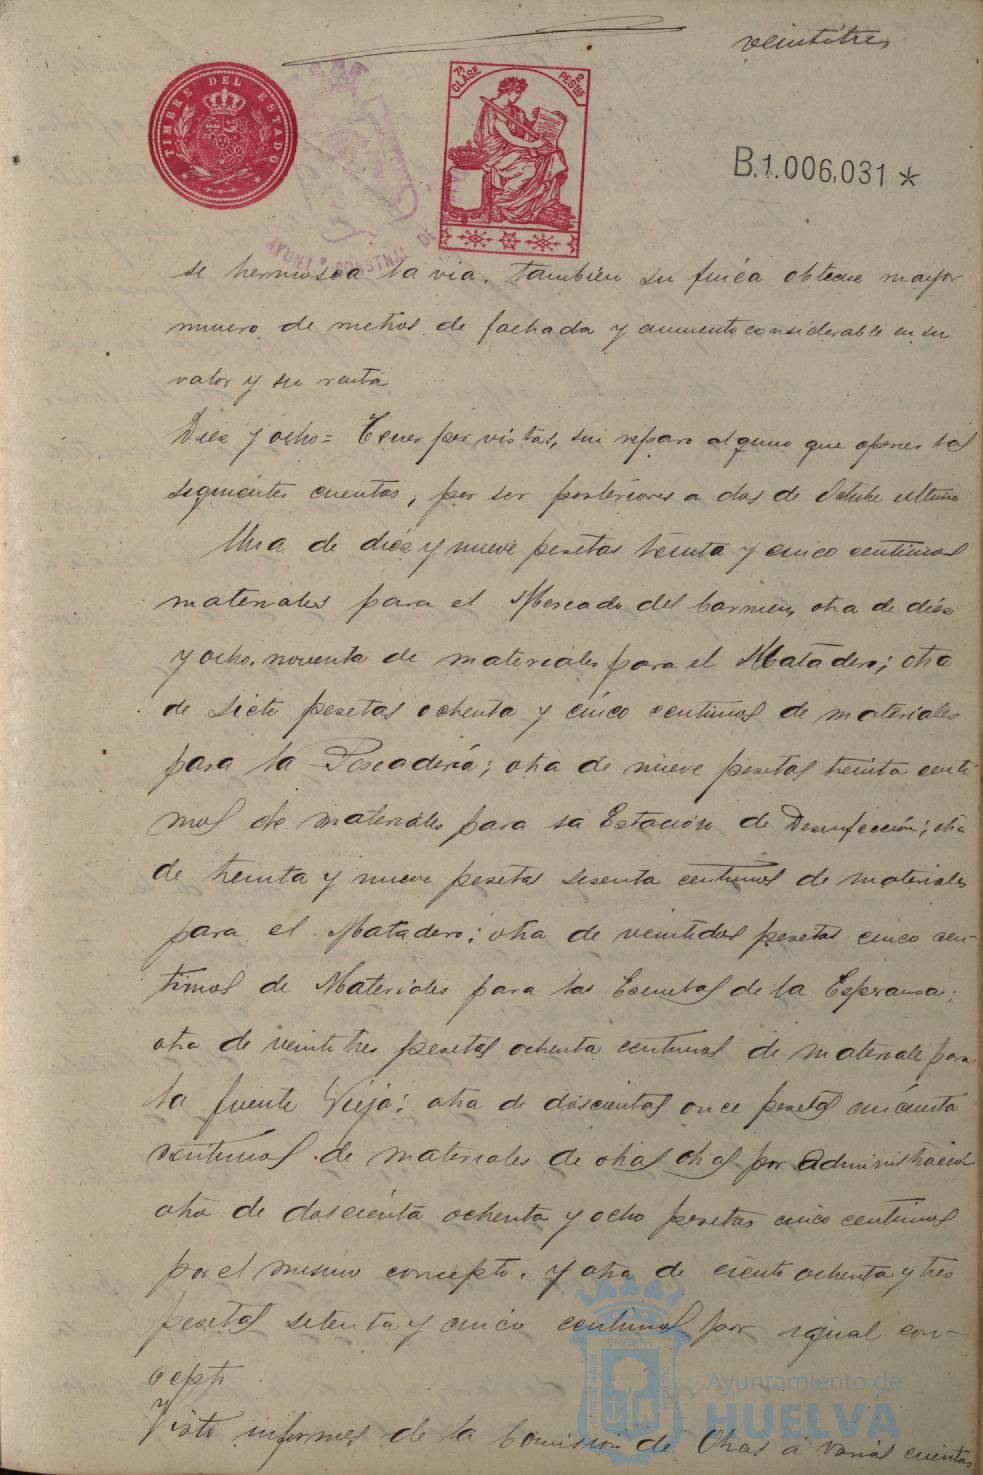 veintitres
TIMBRE DEL ESTADO
7ª CLASE
2 PESTAS
B.1.006,031 *
AYUNTº CONSTNAL DE
se hermosea la via, tambien su finca obtiene mayor
numero de metros de fachada y aumento considerable en su
valor y su renta
Diez y ocho = Tener por vistas, sin reparo alguno que oponer las
siguientes cuentas, por ser posteriores a dos de Octubre ultimo
Una de diez y nueve pesetas treinta y cinco centimos
materiales para el Mercado del Carmen, otra de diez
y ocho, noventa de materiales para el Matadero; otra
de siete pesetas ochenta y cinco centimos de materiales
para la Pescadería; otra de nueve pesetas treinta centi
mos de materiales para la Estación de Desinfección; otra
de treinta y nueve pesetas sesenta centimos de materiales
para el Matadero; otra de veintidos pesetas cinco cen-
timos de Materiales para las Escuelas de la Esperanza;
otra de veintitres pesetas ochenta centimos de materiale para
la fuente Vieja; otra de doscientas once pesetas cincuenta
centimos de materiales de otras obras por administración
otra de doscienta ochenta y ocho pesetas cinco centimos
por el mismo concepto, y otra de ciento ochenta y tres
pesetas setenta y cinco centimos por igual con-
cepto
Visto informes de la Comision de Obras a varias cuentas
Ayuntamiento de
HUELVA